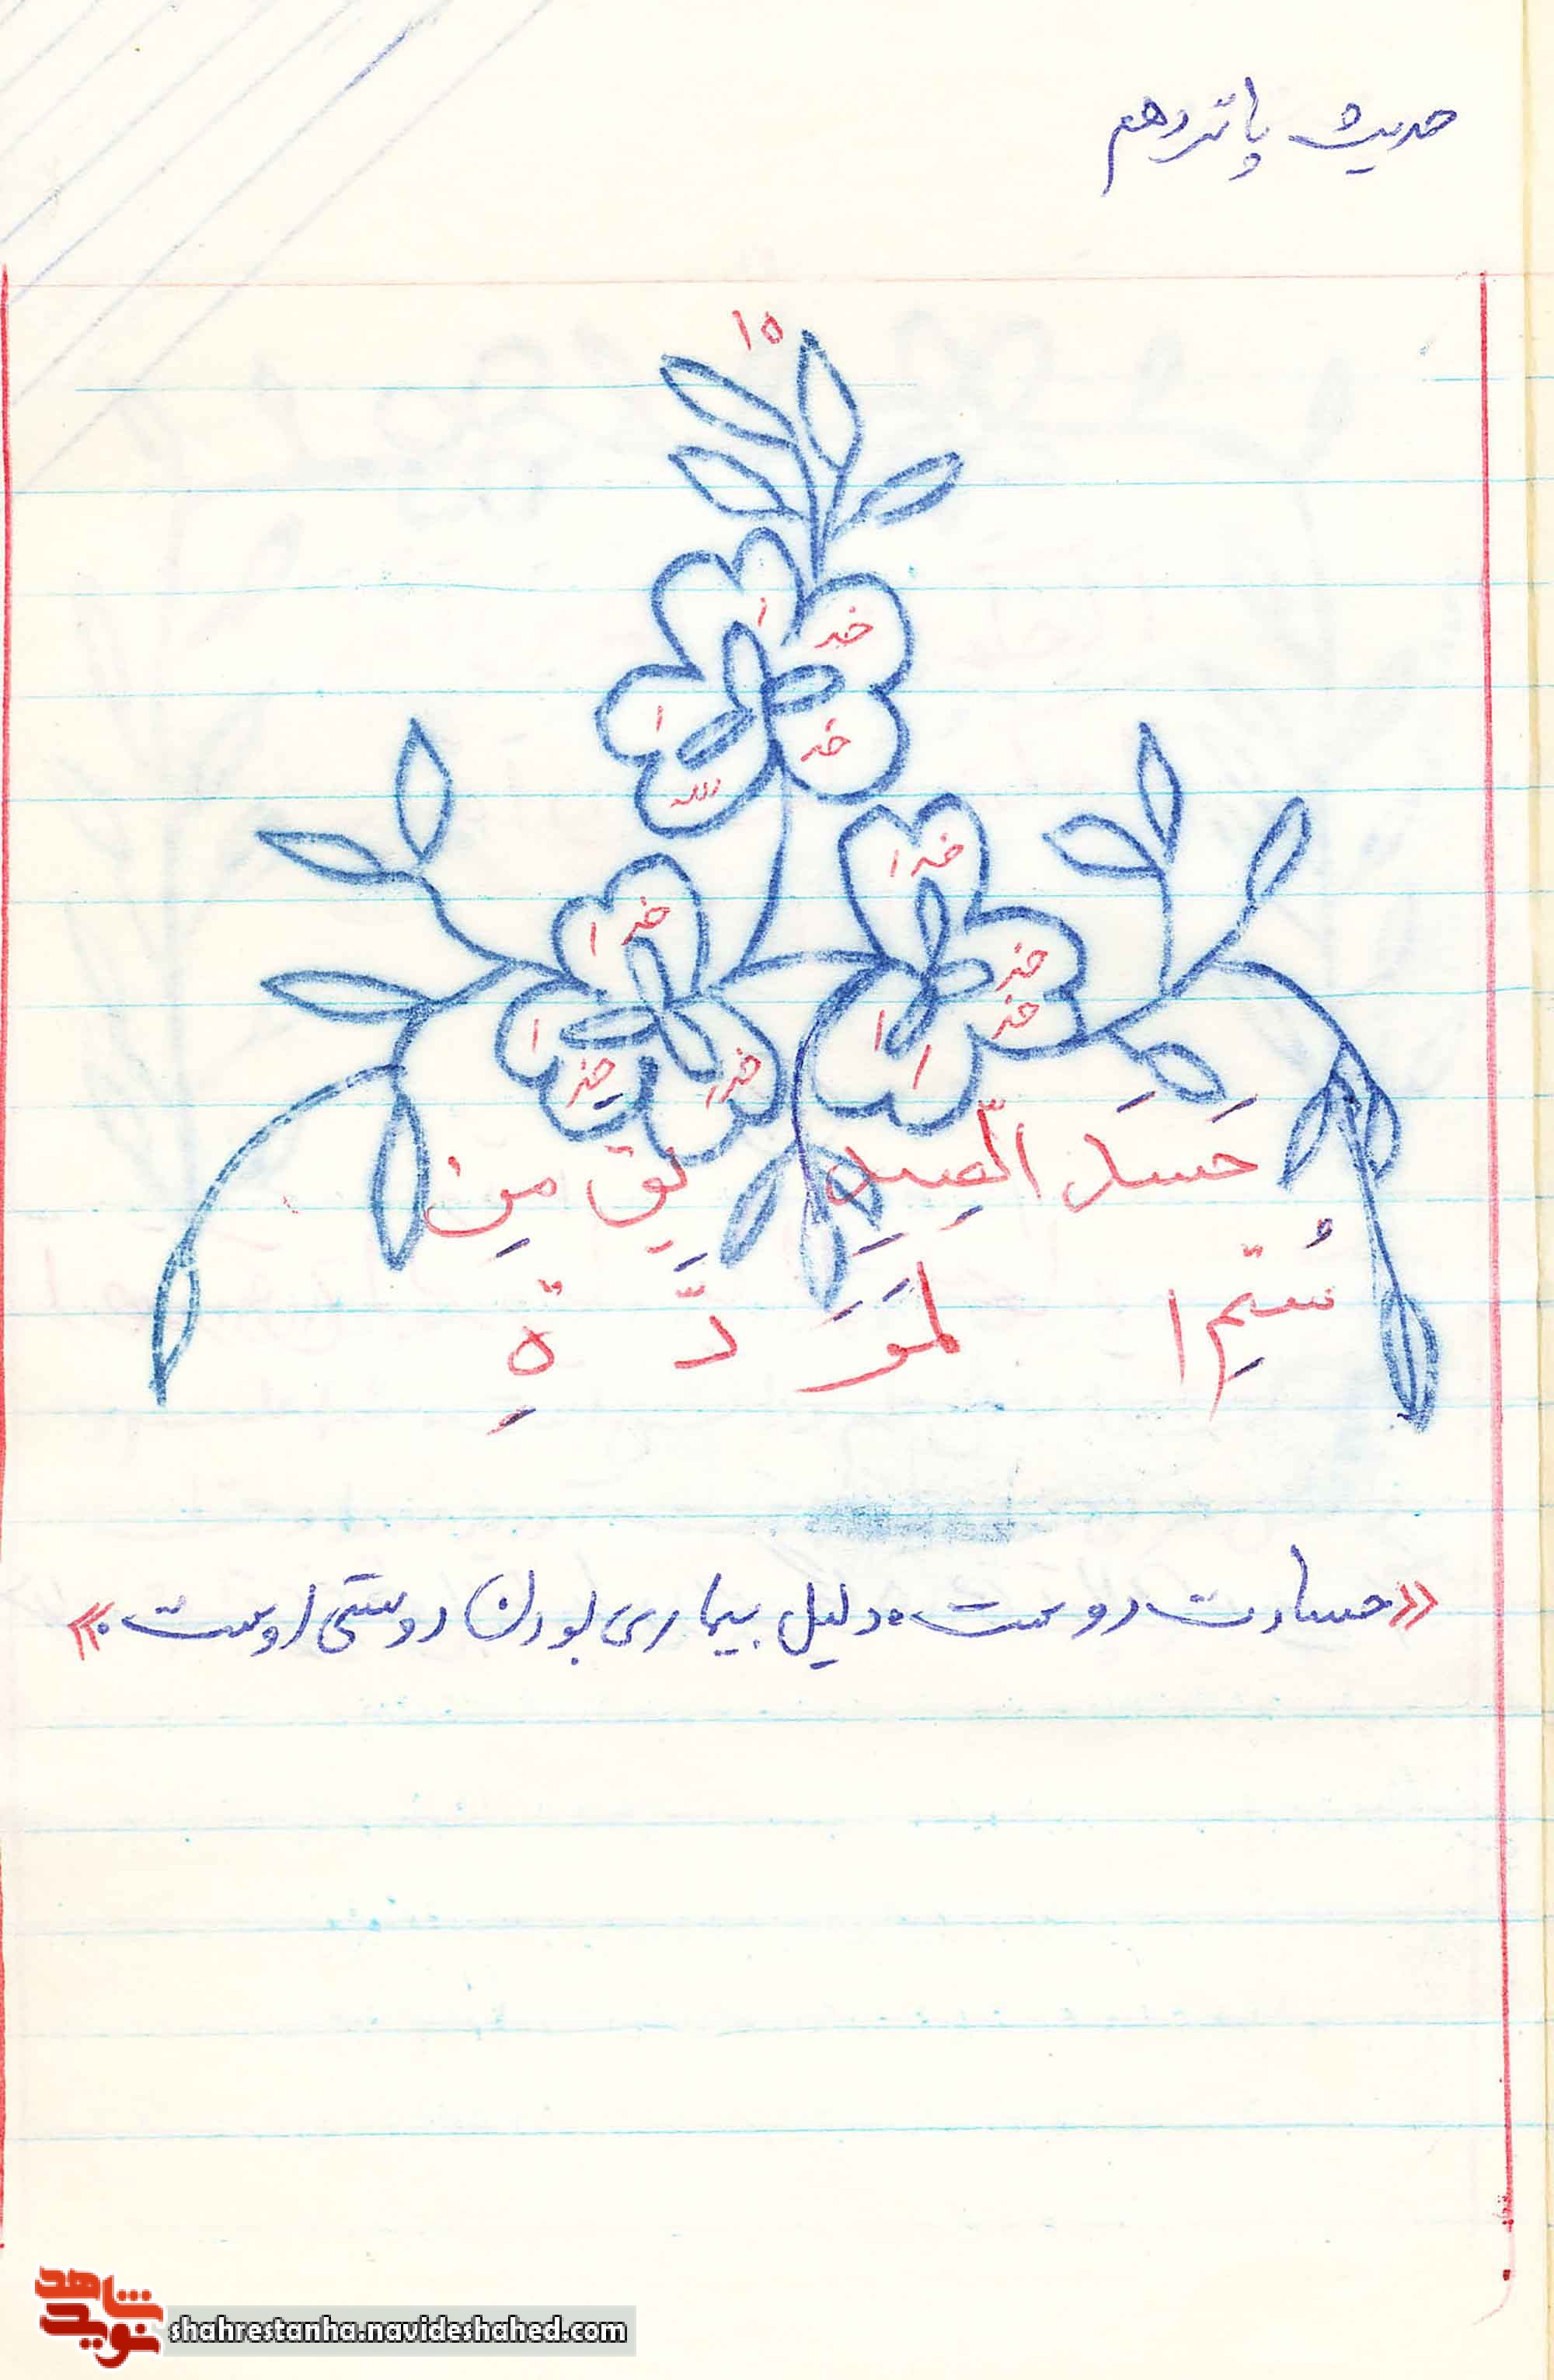 حدیث پانزدهم
۱۵
خدا
خدا
الله
خدا
خدا
خدا
خدا
خدا
خدا
حَسَدُ الصّدِیقِ مِن
سُقمِ المَوَدَّةِ
«حسادت دوست دلیل بیماری بودن دوستی اوست.»
نوید شاهد
shahrestanha.navideshahed.com